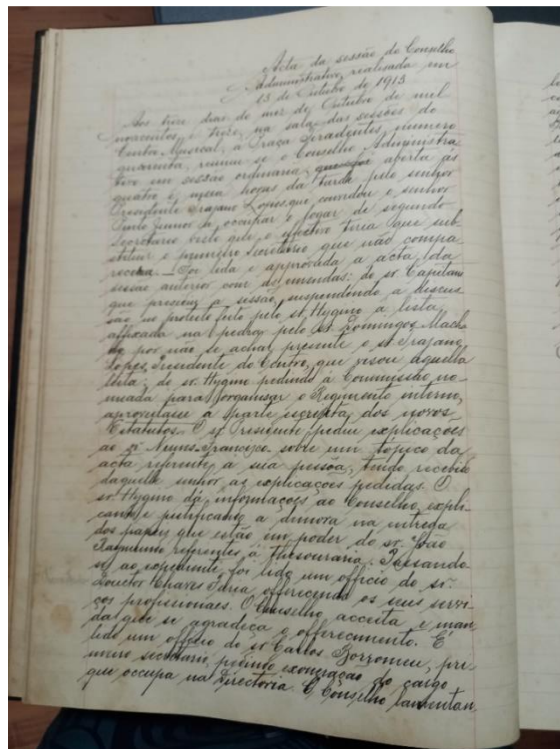 Acta da sessão do Conselho
Administrativo, realisada em
13 de Outubro de 1913
Aos treze dias do mez de Outubro de mil
novecentos e treze, na sala das sessões do
Centro Musical, á Praça Tiradentes numero
quarenta, reuniu-se o Conselho Administra
tivo em sessão ordinaria, aberta ás
quatro e meia horas da tarde pelo senhor
Presidente Trajano Lopes, que convidou o senhor
Junior a occupar o logar de segundo
Secretario visto que o effectivo teria que sub
stituir o primeiro Secretario que não compa
receu. Foi lida e approvada a acta da
sessão anterior com as emendas: do sr. Capitani
que presidiu a sessão, suspendendo a discus
são do protesto feito pelo sr. Hygino á lista
affixada na pedra pelo sr. Domingos Mach
ado por não se achar presente o sr. Trajano
Lopes, Presidente do Centro, que visou aquella
lista; do sr. Hygino pedindo á Commissão no
meada para organisar o Regimento interno,
aproveitasse a parte dos novos
Estatutos. O sr. Presidente pediu explicações
ao sr. Nunes sobre um topico da
acta referente a sua pessôa, tendo recebido
daquelle senhor as explicações pedidas. O
sr. Hygino dá informações ao Conselho, expli
cando e justificando a demora na entrega
dos papeis que estão em poder do sr. João
referentes á Thesouraria. Passando
se ao expediente, foi lido um officio do sr.
Doutor Chaves offerecendo os seus servi
ços profissionaes. O Conselho acceita e man
da que se agradeça o offerecimento. É
lido um officio do sr. Carlos Borromeu, pri
meiro secretario, pedindo exoneração do cargo
que occupa na Directoria. O Conselho lamentan